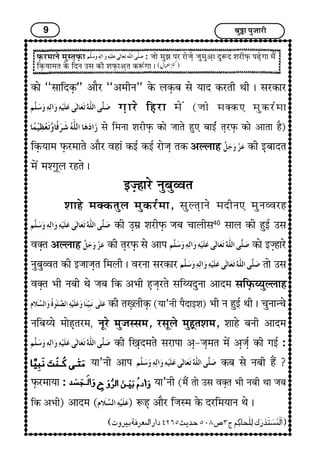 9
बुड्ढा पुजारी
फ़रमाने मुस्तफ़ा صَلَّى اللّٰهُ تَعَالٰى عَلَيْهِ وَاٰلِهٖ وَسَلَّم : जो मुझ पर रोज़े जुमुआ दुरूद शरीफ़ पढ़ेगा मैं
क़ियामत के दिन उस की शफ़ाअ़त करूंगा । (كنز العمال)
को “सादिक़” और “अमीन” के लक़ब से याद करती थी । सरकार
صَلَّى اللّٰهُ تَعَالٰى عَلَيْهِ وَاٰلِهٖ وَسَلَّم ग़ारे हिरा में (जो मक्कए मुकर्रमा
زَادَهَا اللّٰهُ شَرَفًا وَّتَعْظِيْمًا से मिना शरीफ़ को जाते हुए बाईं त़रफ़ को आता है)
क़ियाम फ़रमाते और वहां कई कई रोज़ तक अल्लाह عَزَّوَجَلَّ की इबादत
में मश्ग़ूल रहते ।
इज़्हारे नुबुव्वत
शाहे मक्कतुल मुकर्रमा, सुल्ताने मदीनए मुनव्वरह
صَلَّى اللّٰهُ تَعَالٰى عَلَيْهِ وَاٰلِهٖ وَسَلَّم की उम्र शरीफ़ जब चालीस40 साल की हुई उस
वक़्त अल्लाह عَزَّوَجَلَّ की त़रफ़ से आप صَلَّى اللّٰهُ تَعَالٰى عَلَيْهِ وَاٰلِهٖ وَسَلَّم को इज़्हारे
नुबुव्वत की इजाज़त मिली । वरना सरकार صَلَّى اللّٰهُ تَعَالٰى عَلَيْهِ وَاٰلِهٖ وَسَلَّم तो उस
वक़्त भी नबी थे जब कि अभी हज़रते सय्यिदुना आदम सफ़िय्युल्लाह
عَلٰى نَبِيِّنَا وَعَلَيْهِ الصَّلٰوةُ وَالسَّلَام की तख़्लीक़ (या'नी पैदाइश) भी न हुई थी । चुनान्चे
नबिय्ये मोह़तरम, नूरे मुजस्सम, रसूले मुह़्तशम, शाहे बनी आदम
صَلَّى اللّٰهُ تَعَالٰى عَلَيْهِ وَاٰلِهٖ وَسَلَّم की ख़िदमते सरापा अ़-ज़मत में अ़र्ज़ की गई :
مَتٰى كُنْتَ نَبِيًّا या'नी आप صَلَّى اللّٰهُ تَعَالٰى عَلَيْهِ وَاٰلِهٖ وَسَلَّم कब से नबी हैं ?
फ़रमाया : وَاٰدَمُ بَيْنَ الرُّوْحِ وَالْجَسَدِ या'नी (मैं तो उस वक़्त भी नबी था जब
कि अभी) आदम (عَلَيْهِ السَّلَام) रूह़ और जिस्म के दरमियान थे ।
(اَلْمُسْتَدْرَك لِلْحَاكِم ج٣ ص٥٠٨ حديث ٤٢٦٥ دارالمعرفة بيروت)